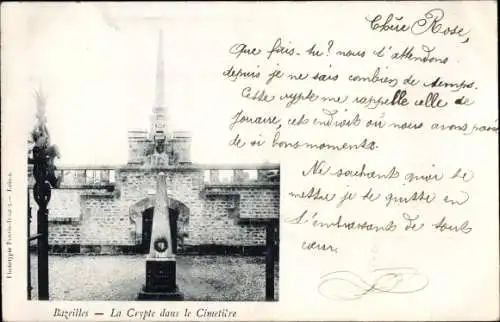 Chère Rose,
Que fais-tu? nous t'attendons
depuis je ne sais combien de temps.
Cette crypte me rappelle celle de
Jouarre, cet endroit où nous avons passé
de si bons moments.
Ne sachant quoi te
mettre je te quitte en
t'embrassant de tout
cœur.
Bazeilles — La Crypte dans le Cimetière